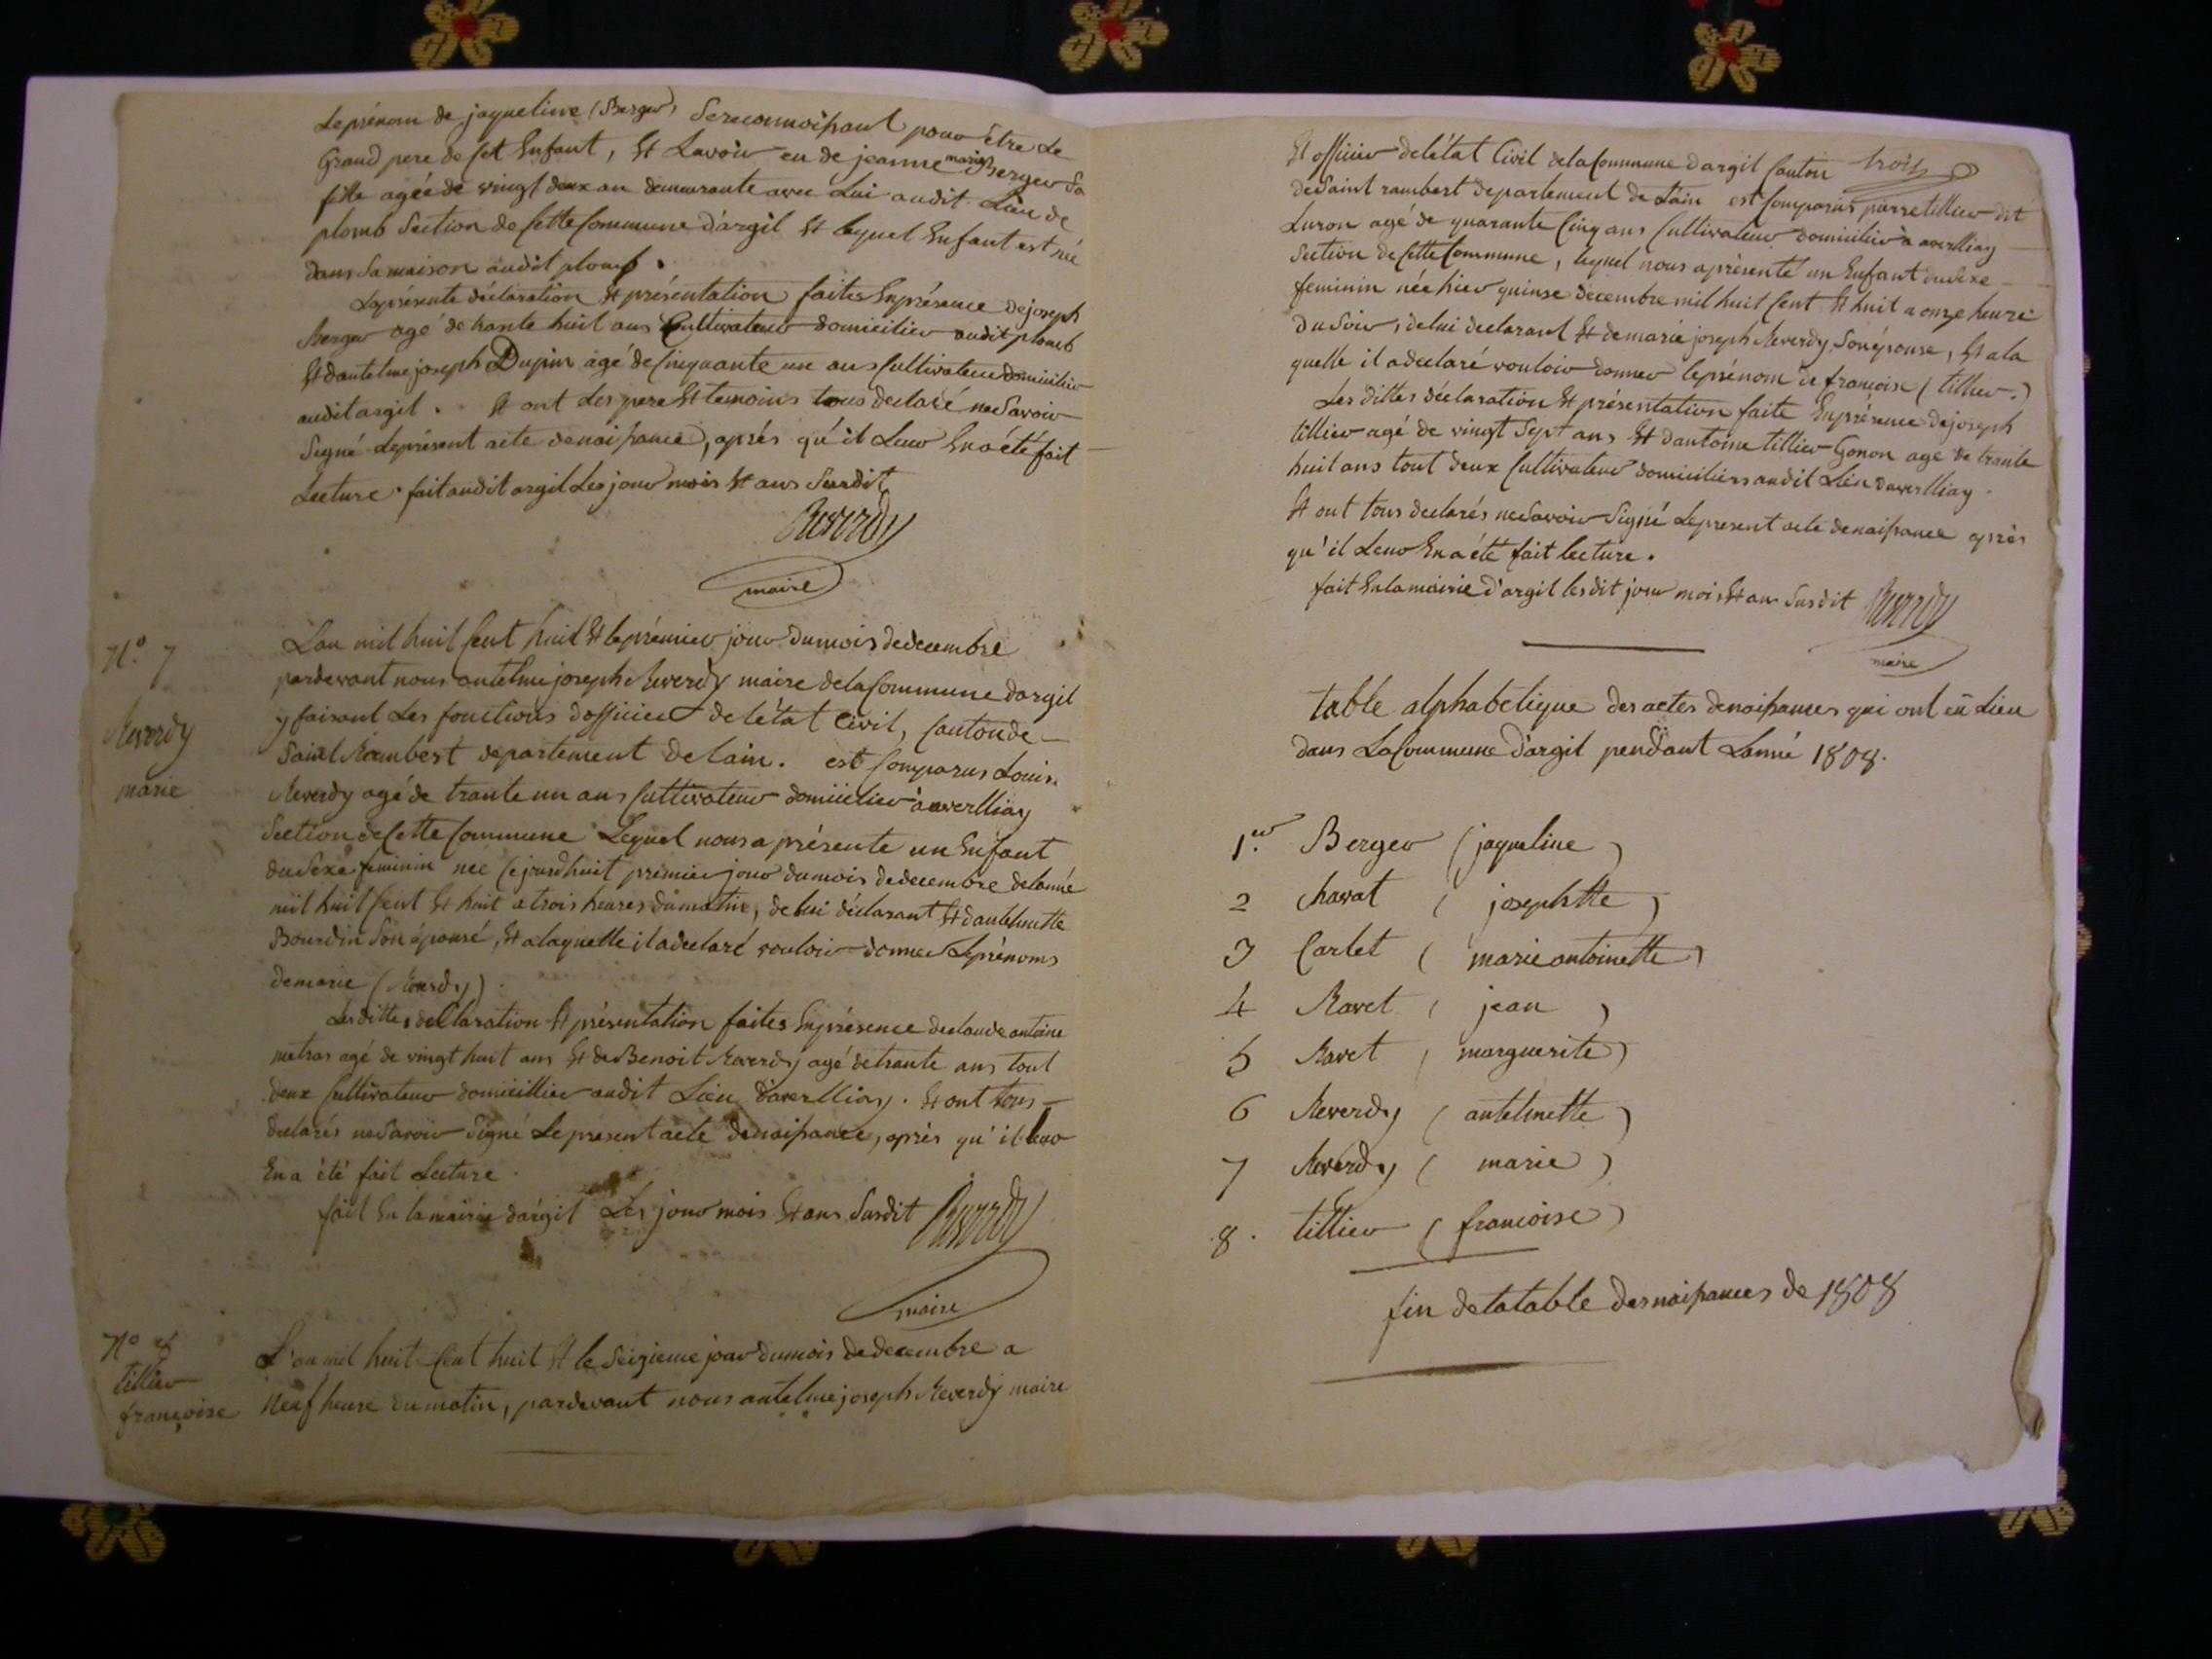 Le prénom de jaqueline (Berger) se reconnoissant pour être Le
Grand pere de cet Enfant, Et Lavoir eu de jeanne marie Berger sa
fille agée de vingt deux an demeurante avec Lui audit Lieu de
plomb Section de Cette Commune d'argil Et lequel Enfant est né
dans sa maison audit plomb.
La présente déclaration Et présentation faites En présence de joseph
Berger agé de trante huit ans Cultivateur domicilier audit plomb
Et dantelme joseph Dupin agé de Cinquante un ans Cultivateur domicilier
audit argil. Et ont Les pere Et temoins tous declaré ne Savoir
Signé Le présent acte de naissance, après qu'il Leur En a été fait
Lecture. fait audit argil Les jour mois Et ans Susdit
Reverdy
maire
N.° 7
Reverdy
marie
L'an mil huit Cent huit Et le prémier jour du mois de decembre
pardevant nous antelme joseph Reverdy maire de la Commune dargil
y faisant Les fonctions d'officier de l'état Civil, Canton de
Saint Rambert departement de lain. est Comparus Louis
Reverdy agé de trante un ans Cultivateur domicilier à averlliay
Section de Cette Commune Lequel nous a présenté un Enfant
du Sexe feminin nee Cejourdhuit prémier jour du mois de decembre de lanné
mil huit Cent Et huit a trois heures du matin, de lui déclarant Et dantelmette
Bourdin Son épousé, Et a laquelle il a declaré vouloir donner Le prénoms
de marie (Reverdy).
Les dittes declaration Et présentation faites En présence de claude antoine
metras agé de vingt huit ans Et de Benoit Reverdy agé de trante ans tout
deux Cultivateur domicillier audit Lieu daverlliay. Et ont tous
declarés ne Savoir Signé Le present acte de naissance, après qu'il leur
En a été fait Lecture.
fait En la mairie dargil Les jour mois Et ans Susdit Reverdy
maire
N° 8
tillier
françoise
L'an mil huit Cent huit Et le Seizieme jour du mois de decembre a
Neuf heure du matin, pardevant nous antelme joseph Reverdy maire
Et officier de l'état Civil de la Commune dargil Canton trois
de Saint rambert departement de L'ain est Comparus pierre tillier dit
Luron agé de quarante Cinq ans Cultivateur domicilier a averlliay
Section de Cette Commune, lequel nous a présenté un Enfant du Sexe
feminin née hier quinse decembre mil huit Cent Et huit a onze heure
du Soir, de lui declarant Et de marie joseph Reverdy, Son épouse, Et a la
quelle il a declaré vouloir donner le prénom de francoise (tillier.)
Les dittes déclaration Et présentation faite En présence de joseph
tillier agé de vingt Sept ans Et dantoine tillier Gonon agé de trante
huit ans tout deux Cultivateur domiciliers audit Lieu daverlliay.
Et ont tous declarés ne Savoir Signé Le present acte de naissance après
qu'il Leur En a été fait lecture.
fait En la mairie d'argil les dit jour mois Et an Susdit Reverdy
maire
table alphabetique des actes de naissances qui ont eü Lieu
dans La Commune d'argil pendant Lanné 1808.
1.er Berger (jaqueline)
2 Chavat (josephtte)
3 Carlet (marie antoinette)
4 Ravet (jean)
5 Ravet (marguerite)
6 Reverdy (antelmette)
7 Reverdy (marie)
8. tillier (francoise)
fin de la table des naissances de 1808